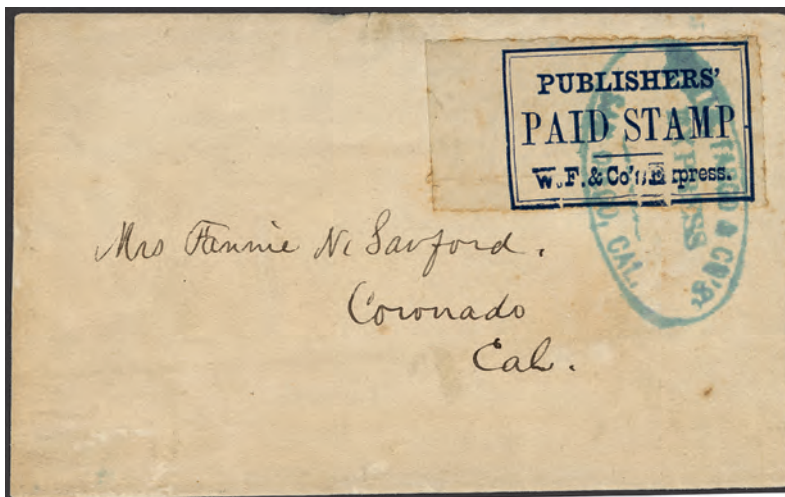 PUBLISHERS'
PAID STAMP
W. F. & Co's Express.
& CO'S
EXPRESS
CAL.
Mrs Fannie N. Sanford.
Coronado
Cal.